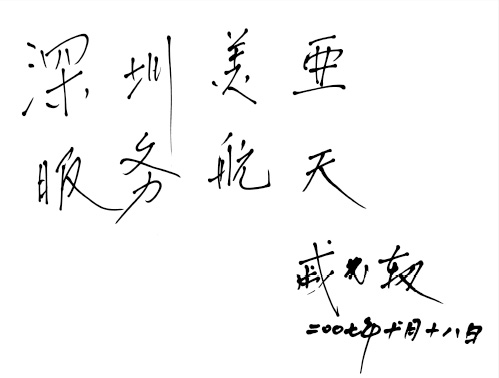 深圳美亚
服务航天
戚发轫
二〇〇七年十月十八日